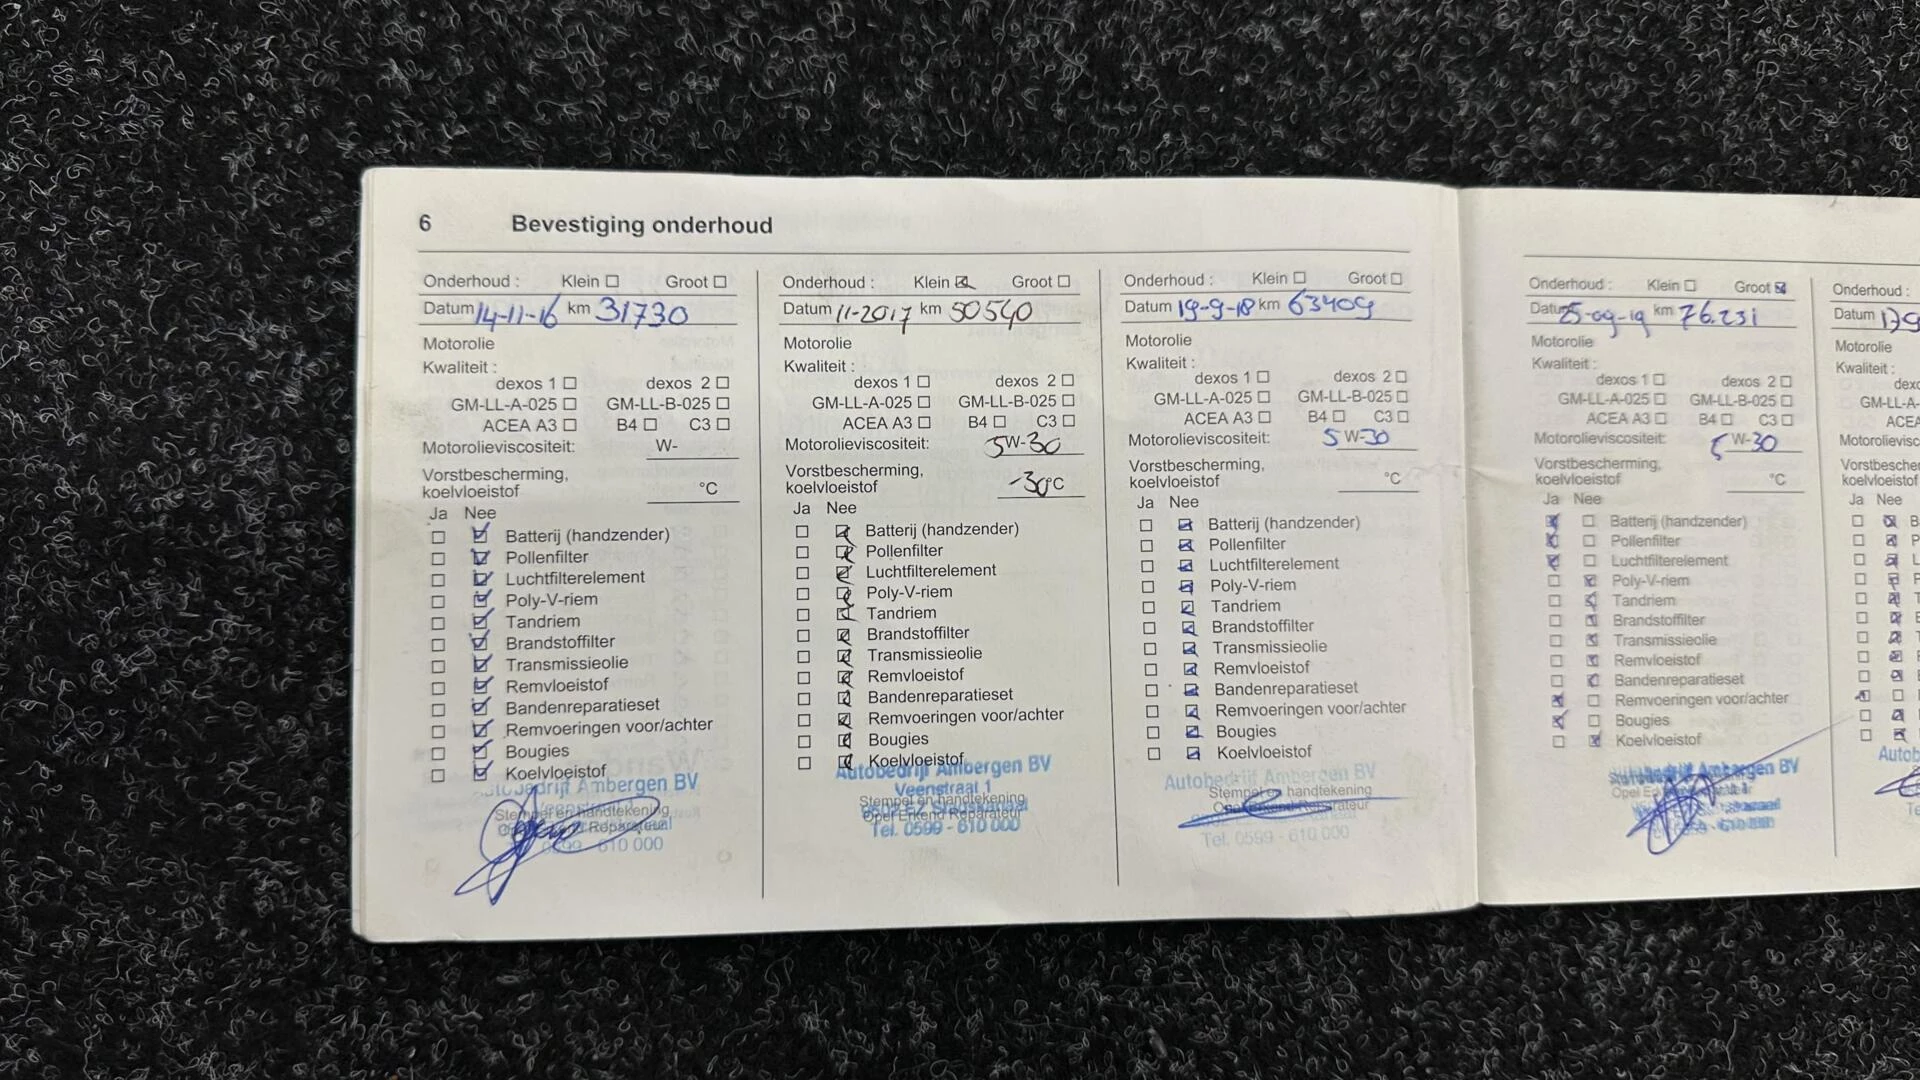 6 Bevestiging onderhoud
Onderhoud : Klein Groot
Datum 14-11-16 km 31730
Motorolie
Kwaliteit :
dexos 1 dexos 2
GM-LL-A-025 GM-LL-B-025
ACEA A3 B4 C3
Motorolieviscositeit: W-
Vorstbescherming,
koelvloeistof °C
Ja Nee
Batterij (handzender)
Pollenfilter
Luchtfilterelement
Poly-V-riem
Tandriem
Brandstoffilter
Transmissieolie
Remvloeistof
Bandenreparatieset
Remvoeringen voor/achter
Bougies
Koelvloeistof
Autobedrijf Ambergen BV
Stempel en handtekening
Opel Erkend Reparateur
0599 - 610 000
Onderhoud : Klein Groot
Datum 11-2017 km 50540
Motorolie
Kwaliteit :
dexos 1 dexos 2
GM-LL-A-025 GM-LL-B-025
ACEA A3 B4 C3
Motorolieviscositeit: 5W-30
Vorstbescherming,
koelvloeistof -30°C
Ja Nee
Batterij (handzender)
Pollenfilter
Luchtfilterelement
Poly-V-riem
Tandriem
Brandstoffilter
Transmissieolie
Remvloeistof
Bandenreparatieset
Remvoeringen voor/achter
Bougies
Koelvloeistof
Autobedrijf Ambergen BV
Veenstraat 1
Stempel en handtekening
Opel Erkend Reparateur
Tel. 0599 - 610 000
Onderhoud : Klein Groot
Datum 19-9-18 km 63409
Motorolie
Kwaliteit :
dexos 1 dexos 2
GM-LL-A-025 GM-LL-B-025
ACEA A3 B4 C3
Motorolieviscositeit: 5W-30
Vorstbescherming,
koelvloeistof °C
Ja Nee
Batterij (handzender)
Pollenfilter
Luchtfilterelement
Poly-V-riem
Tandriem
Brandstoffilter
Transmissieolie
Remvloeistof
Bandenreparatieset
Remvoeringen voor/achter
Bougies
Koelvloeistof
Autobedrijf Ambergen BV
Stempel en handtekening
Opel Erkend Reparateur
Tel. 0599 - 610 000
Onderhoud : Klein Groot
Datum 25-09-19 km 76.231
Motorolie
Kwaliteit :
dexos 1 dexos 2
GM-LL-A-025 GM-LL-B-025
ACEA A3 B4 C3
Motorolieviscositeit: 5W-30
Vorstbescherming,
koelvloeistof °C
Ja Nee
Batterij (handzender)
Pollenfilter
Luchtfilterelement
Poly-V-riem
Tandriem
Brandstoffilter
Transmissieolie
Remvloeistof
Bandenreparatieset
Remvoeringen voor/achter
Bougies
Koelvloeistof
Ambergen BV
Onderhoud :
Datum
Motorolie
Kwaliteit :
Ja Nee